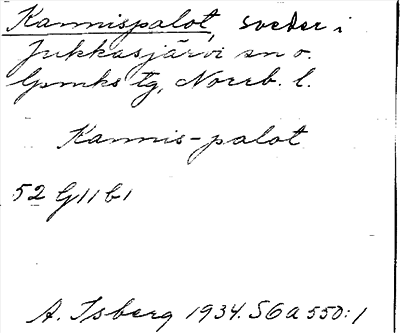 Kannispalot, sveder i
Jukkasjärvi sn o.
Gpmks tg, Norrb. l.
Kannis-palot
52 G11 b1
A. Isberg 1934. SOA 550:1